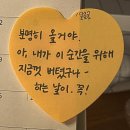 분명히 올거야.
아, 내가 이 순간을 위해
지금껏 버텼구나-
하는 날이. 꼭!